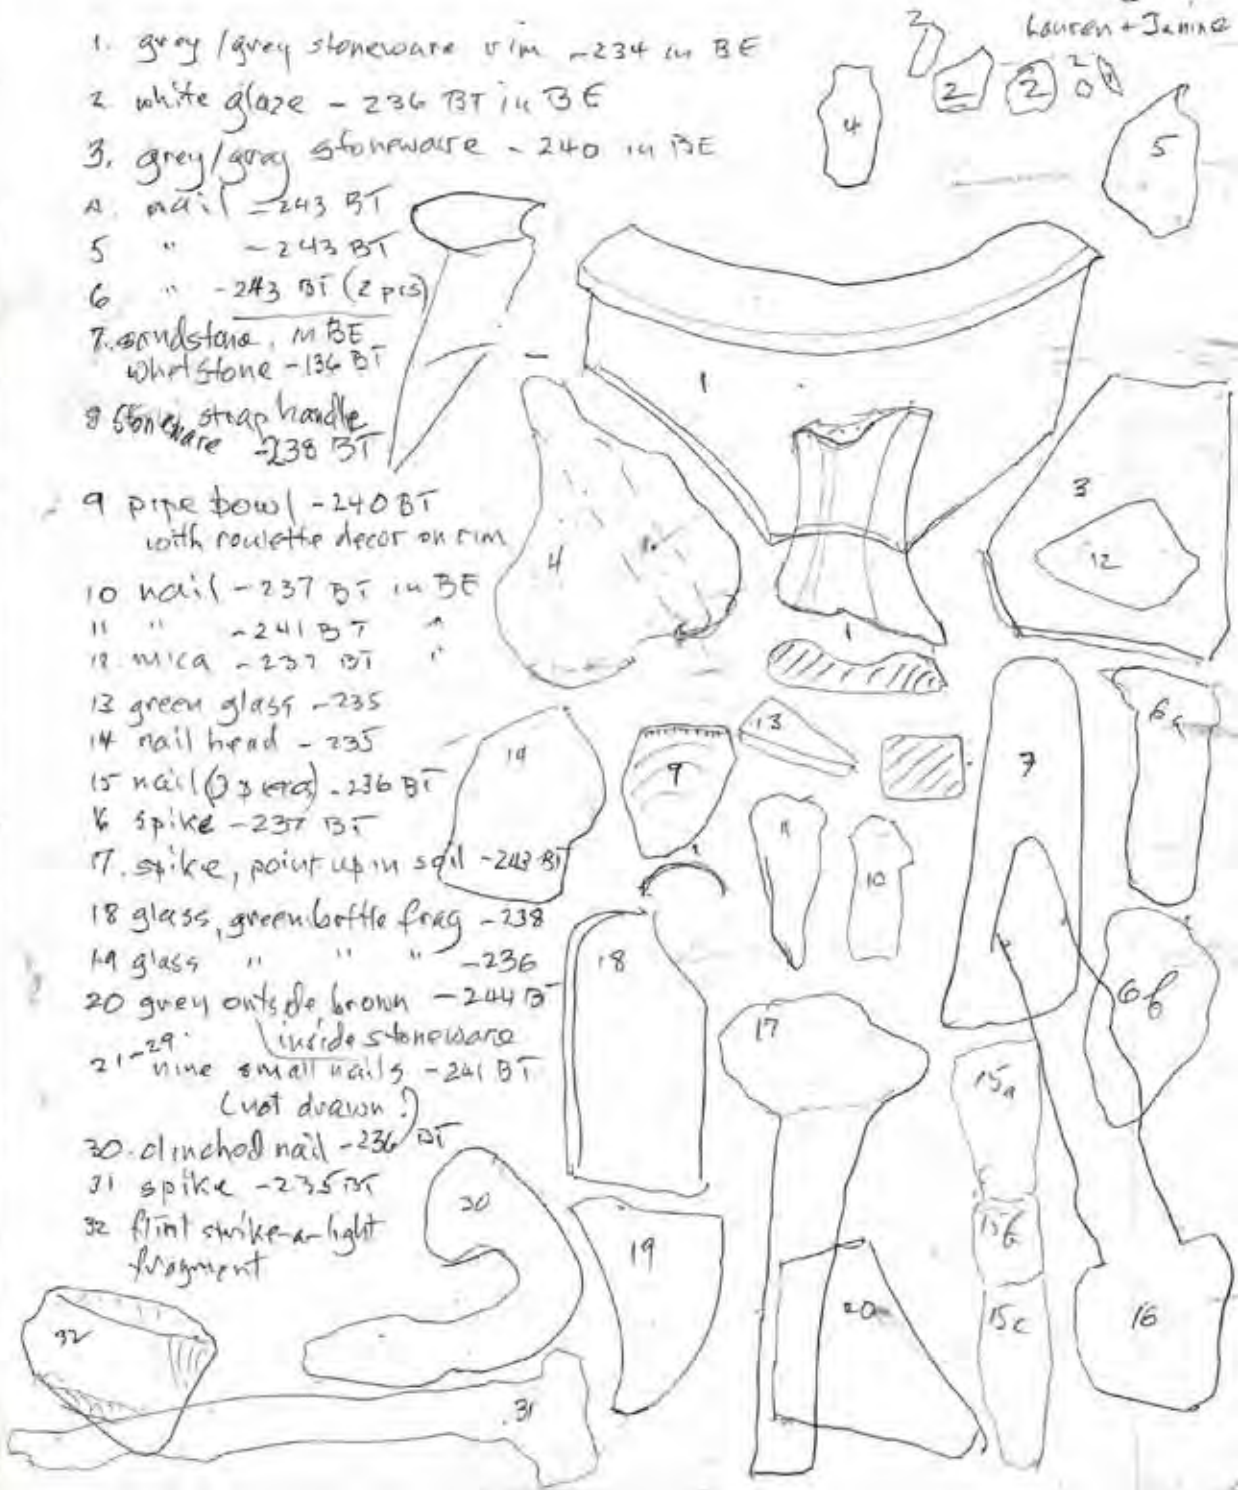 Lauren + Janine
1. grey/grey stoneware rim -234 in BE
2 white glaze - 236 BT in BE
3. grey/gray stoneware - 240 in BE
4. nail -243 BT
5 " -243 BT
6 " -243 BT (2 pcs)
7. sandstone, in BE
whetstone -136 BT
8 stoneware strap handle
-238 BT
9 pipe bowl -240 BT
with roulette decor on rim
10 nail -237 BT in BE
11 " -241 BT "
12. mica -237 BT "
13 green glass -235
14 nail head - 235
15 nail -236 BT
16 spike -237 BT
17. spike, point up in soil -243 BT
18 glass, green bottle frag -238
19 glass " " " -236
20 grey outside brown -244 BT
inside stoneware
21-29. nine small nails -241 BT
(not drawn!)
30. clinched nail -236 BT
31 spike -235 BT
32 flint strike-a-light
fragment
2
2
2
2
4
5
1
3
12
4
1
6a
13
14
9
7
11
10
18
6b
17
15a
30
15b
19
20
15c
16
32
31